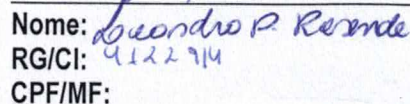 Nome: Leandro P. Resende
RG/CI: 4122914
CPF/MF: